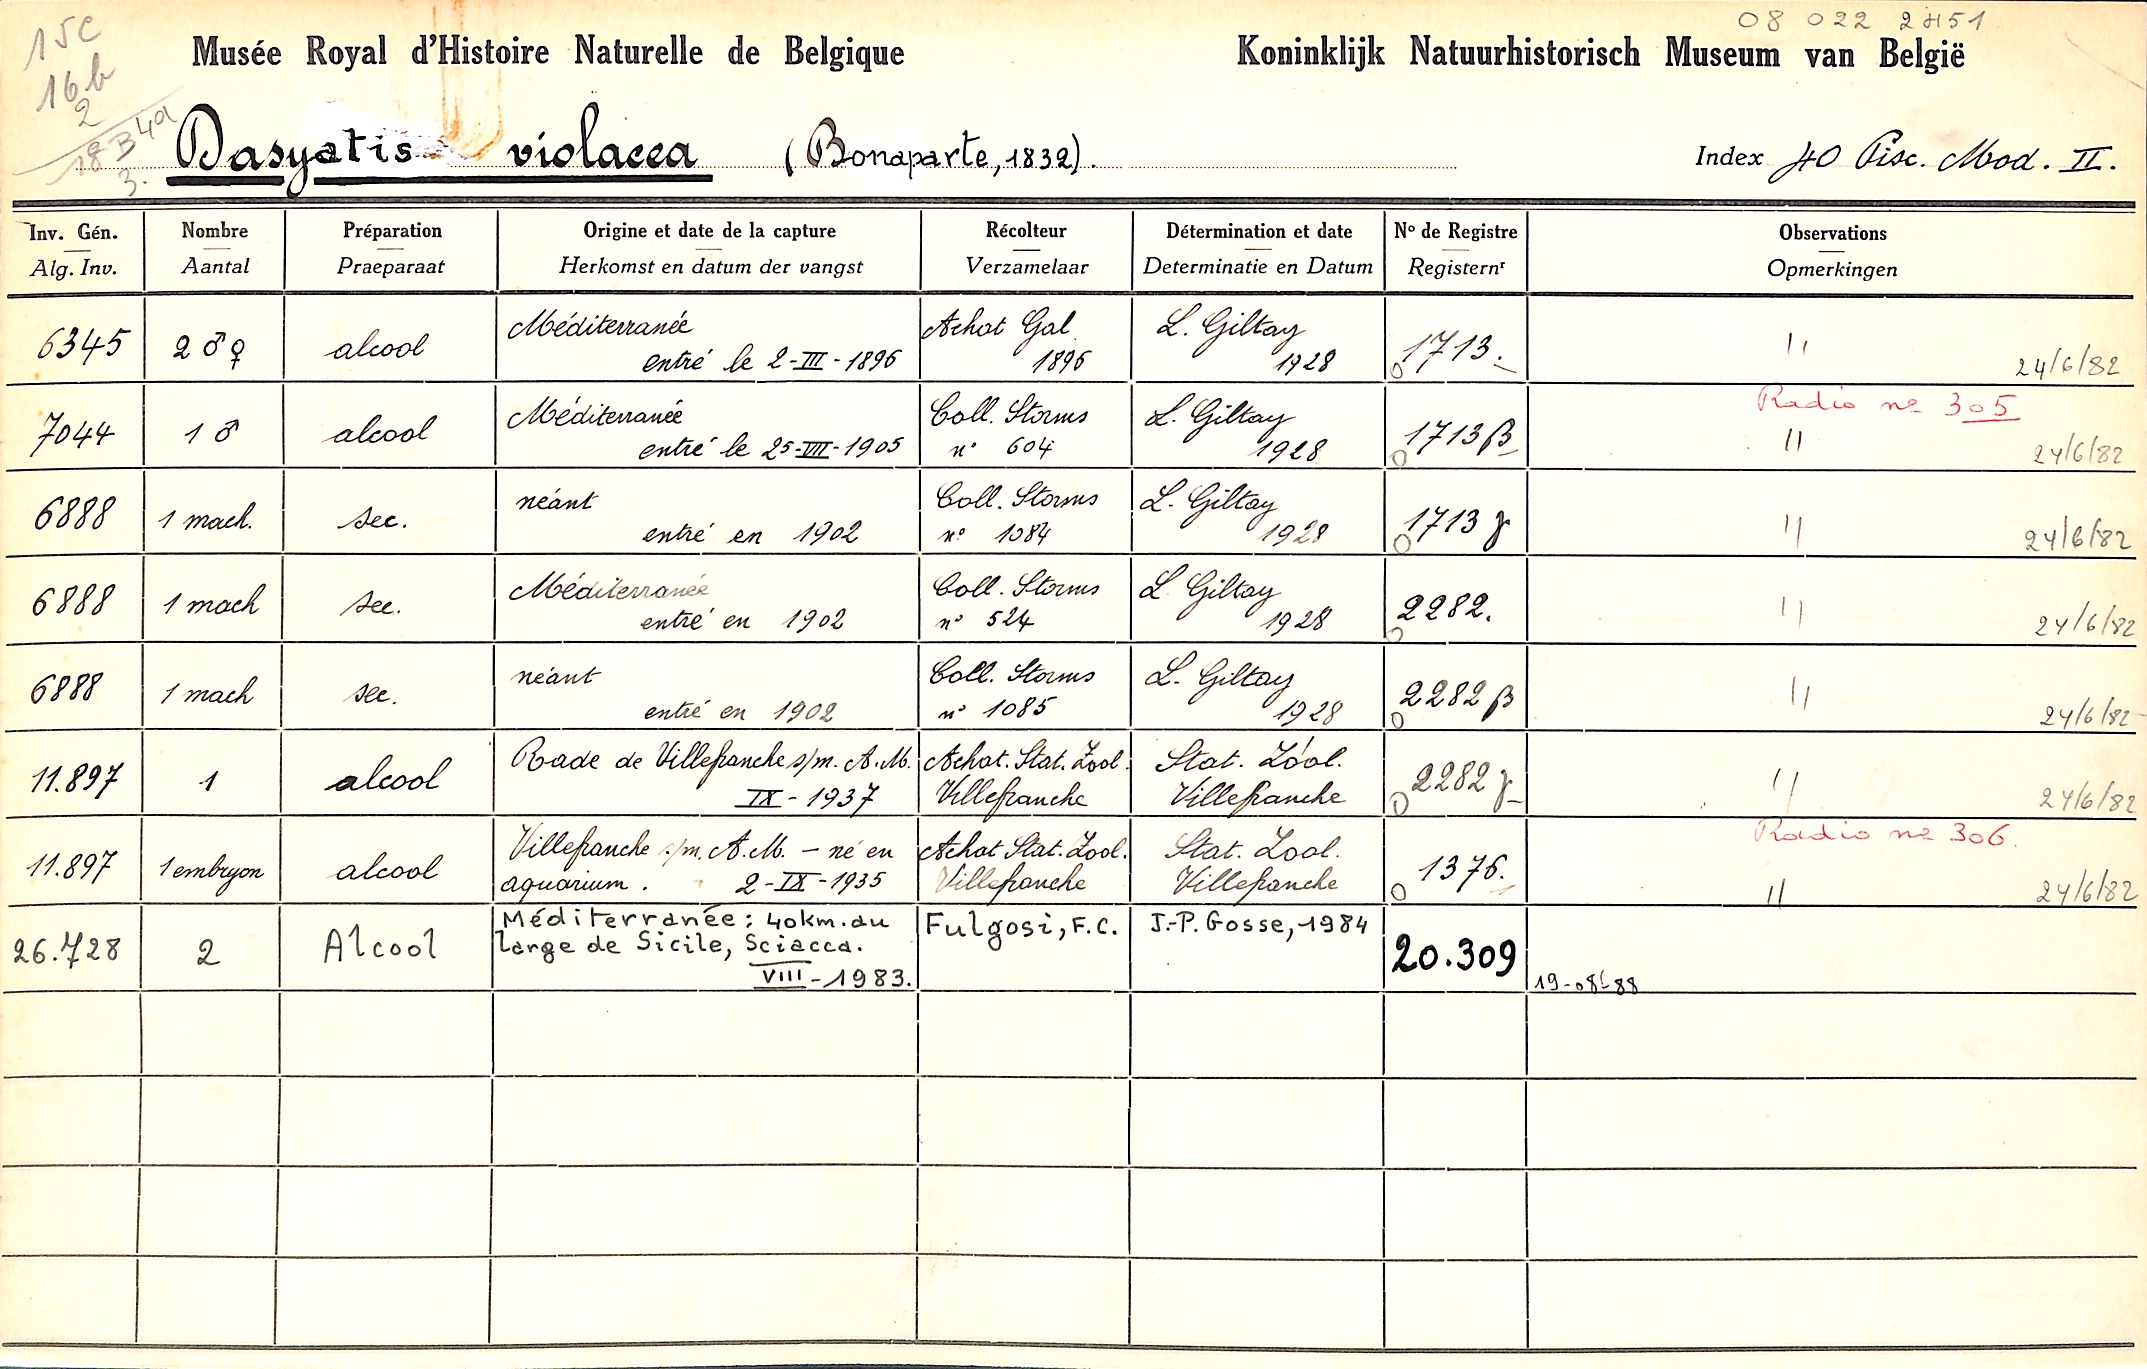 15c
16b
2
18 B 4a
3.
08 022 2451
Musée Royal d'Histoire Naturelle de Belgique
Koninklijk Natuurhistorisch Museum van België
Dasyatis violacea (Bonaparte, 1832).
Index 40 Pisc. Mod. II.
Inv. Gén. Nombre Préparation Origine et date de la capture Récolteur Détermination et date No de Registre Observations
Alg. Inv. Aantal Praeparaat Herkomst en datum der vangst Verzamelaar Determinatie en Datum Registernr Opmerkingen
Méditerranée Achat Gal L. Giltay
6345 2 ♂♀ alcool entré le 2-III-1896 1896 1928 1713. " 24/6/82
Radio no 305
Méditerranée Coll. Storms L. Giltay
7044 1 ♂ alcool entré le 25-VIII-1905 n° 604 1928 1713 β " 24/6/82
néant Coll. Storms L. Giltay
6888 1 mach. sec. entré en 1902 n° 1084 1928 1713 γ " 24/6/82
Méditerranée Coll. Storms L Giltay
6888 1 mach sec. entré en 1902 n° 524 1928 2282. " 24/6/82
néant Coll. Storms L. Giltay
6888 1 mach sec. entré en 1902 n° 1085 1928 2282 β " 24/6/82
Rade de Villefranche s/m. A.M. Achat. Stat. Zool. Stat. Zool.
11.897 1 alcool IX-1937 Villefranche Villefranche 2282 γ " 24/6/82
Radio no 306.
Villefranche s/m. A.M. — né en Achat Stat. Zool. Stat. Zool.
11.897 1 embryon alcool aquarium. 2-IX-1935 Villefranche Villefranche 1376. " 24/6/82
Méditerranée: 40km. au Fulgosi, F.C. J.-P. Gosse, 1984
26.728 2 Alcool large de Sicile, Sciacca. 20.309
VIII-1983. 19-08-88